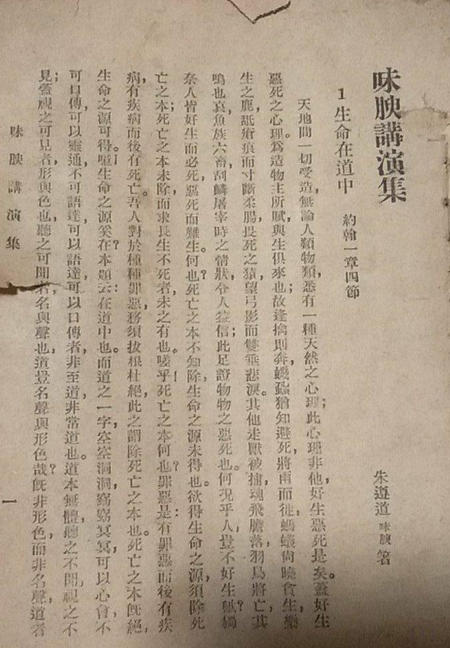 味腴講演集
1 生命在道中 約翰一章四節
朱遵道 味腴 著
天地間一切受造，無論人類物類，悉有一種天然之心理；此心理非他，好生惡死是矣。蓋好生
惡死之心理，爲造物主所賦，與生俱來也；故逢擒則奔，蟣蝨猶知避死，將雨而徙，螞蟻尙曉貪生，樂
生之鹿，舐瘡痕而寸斷柔腸，畏死之猿，望弓影而雙垂悲淚。其他走獸被捕，魂飛膽落，羽鳥將亡，其
鳴也哀，魚族六畜，刮鱗屠宰時之情狀，令人益信；此足證物物之惡死也。何況乎人，豈不好生；無獨
奈人皆好生而必死，惡死而難生。何也？死亡之本不知除，生命之源未得也。欲得生命之源，須除死
亡之本；死亡之本未除，而求長生不死者，未之有也。嗟乎！死亡之本何也？罪惡是；有罪惡而後有疾
病，有疾病而後有死亡。吾人對於種種罪惡，務須拔根杜絕，此之謂除死亡之本也。死亡之本旣絕，
生命之源可得。噫！生命之源奚在？本題云：在道中也。而道之一字，空空洞洞，窈窈冥冥，可以心會，不
可口傳，可以靈通，不可語達；可以語達，可以口傳者，非至道，非常道也。道本無體，聽之不聞，視之不
見；蓋視之可見者，形與色也，聽之可聞者，名與聲也，道豈名聲與形色哉？旣非形色，而非名聲，道者
味腴講演集
一